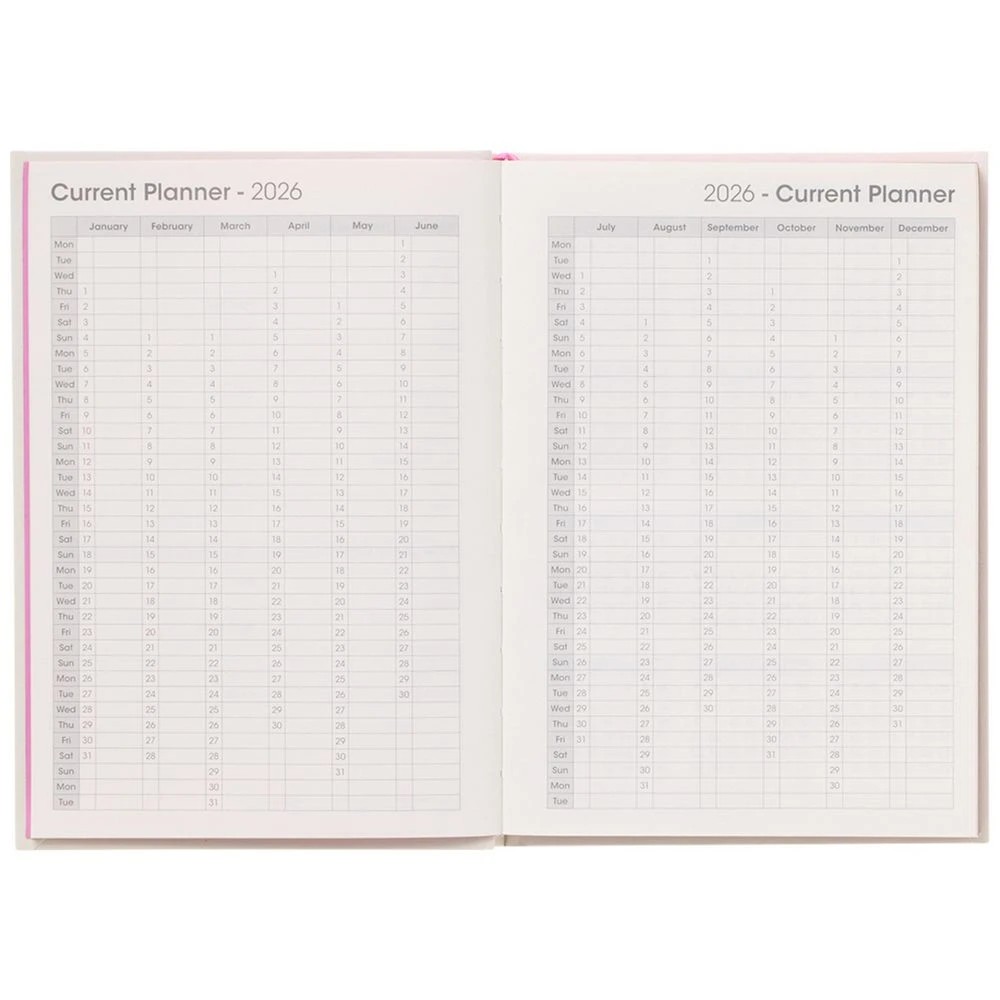 Current Planner - 2026
January February March April May June
Mon 1
Tue 2
Wed 1 3
Thu 1 2 4
Fri 2 3 1 5
Sat 3 4 2 6
Sun 4 1 1 5 3 7
Mon 5 2 2 6 4 8
Tue 6 3 3 7 5 9
Wed 7 4 4 8 6 10
Thu 8 5 5 9 7 11
Fri 9 6 6 10 8 12
Sat 10 7 7 11 9 13
Sun 11 8 8 12 10 14
Mon 12 9 9 13 11 15
Tue 13 10 10 14 12 16
Wed 14 11 11 15 13 17
Thu 15 12 12 16 14 18
Fri 16 13 13 17 15 19
Sat 17 14 14 18 16 20
Sun 18 15 15 19 17 21
Mon 19 16 16 20 18 22
Tue 20 17 17 21 19 23
Wed 21 18 18 22 20 24
Thu 22 19 19 23 21 25
Fri 23 20 20 24 22 26
Sat 24 21 21 25 23 27
Sun 25 22 22 26 24 28
Mon 26 23 23 27 25 29
Tue 27 24 24 28 26 30
Wed 28 25 25 29 27
Thu 29 26 26 30 28
Fri 30 27 27 29
Sat 31 28 28 30
Sun 29 31
Mon 30
Tue 31
2026 - Current Planner
July August September October November December
Mon
Tue 1 1
Wed 1 2 2
Thu 2 3 1 3
Fri 3 4 2 4
Sat 4 1 5 3 5
Sun 5 2 6 4 1 6
Mon 6 3 7 5 2 7
Tue 7 4 8 6 3 8
Wed 8 5 9 7 4 9
Thu 9 6 10 8 5 10
Fri 10 7 11 9 6 11
Sat 11 8 12 10 7 12
Sun 12 9 13 11 8 13
Mon 13 10 14 12 9 14
Tue 14 11 15 13 10 15
Wed 15 12 16 14 11 16
Thu 16 13 17 15 12 17
Fri 17 14 18 16 13 18
Sat 18 15 19 17 14 19
Sun 19 16 20 18 15 20
Mon 20 17 21 19 16 21
Tue 21 18 22 20 17 22
Wed 22 19 23 21 18 23
Thu 23 20 24 22 19 24
Fri 24 21 25 23 20 25
Sat 25 22 26 24 21 26
Sun 26 23 27 25 22 27
Mon 27 24 28 26 23 28
Tue 28 25 29 27 24 29
Wed 29 26 30 28 25 30
Thu 30 27 29 26 31
Fri 31 28 30 27
Sat 29 31 28
Sun 30 29
Mon 31 30
Tue